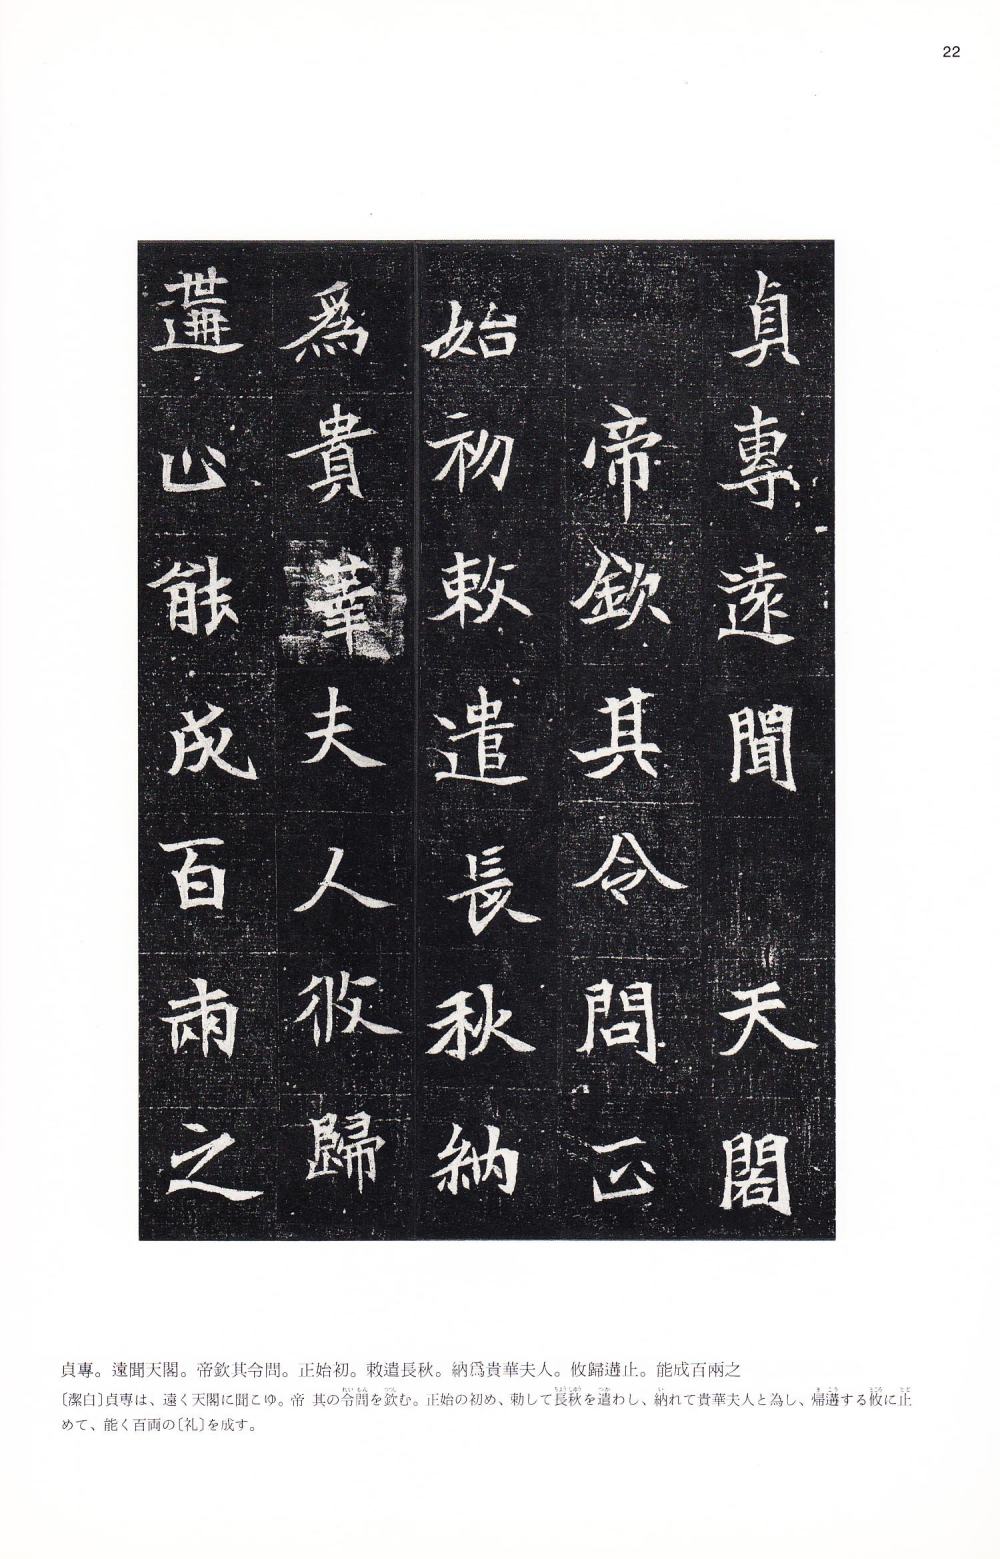 22
貞專遠聞 天閣
帝欽其令問正
始初敕遣長秋納
爲貴華夫人攸歸
遘止能成百兩之
貞專。遠聞天閣。帝欽其令問。正始初。敕遣長秋。納爲貴華夫人。攸歸遘止。能成百兩之
〔潔白〕貞専は、遠く天閣に聞こゆ。帝 其の令問を欽む。正始の初め、勅して長秋を遣わし、納れて貴華夫人と為し、帰遘する攸に止
めて、能く百両の〔礼〕を成す。